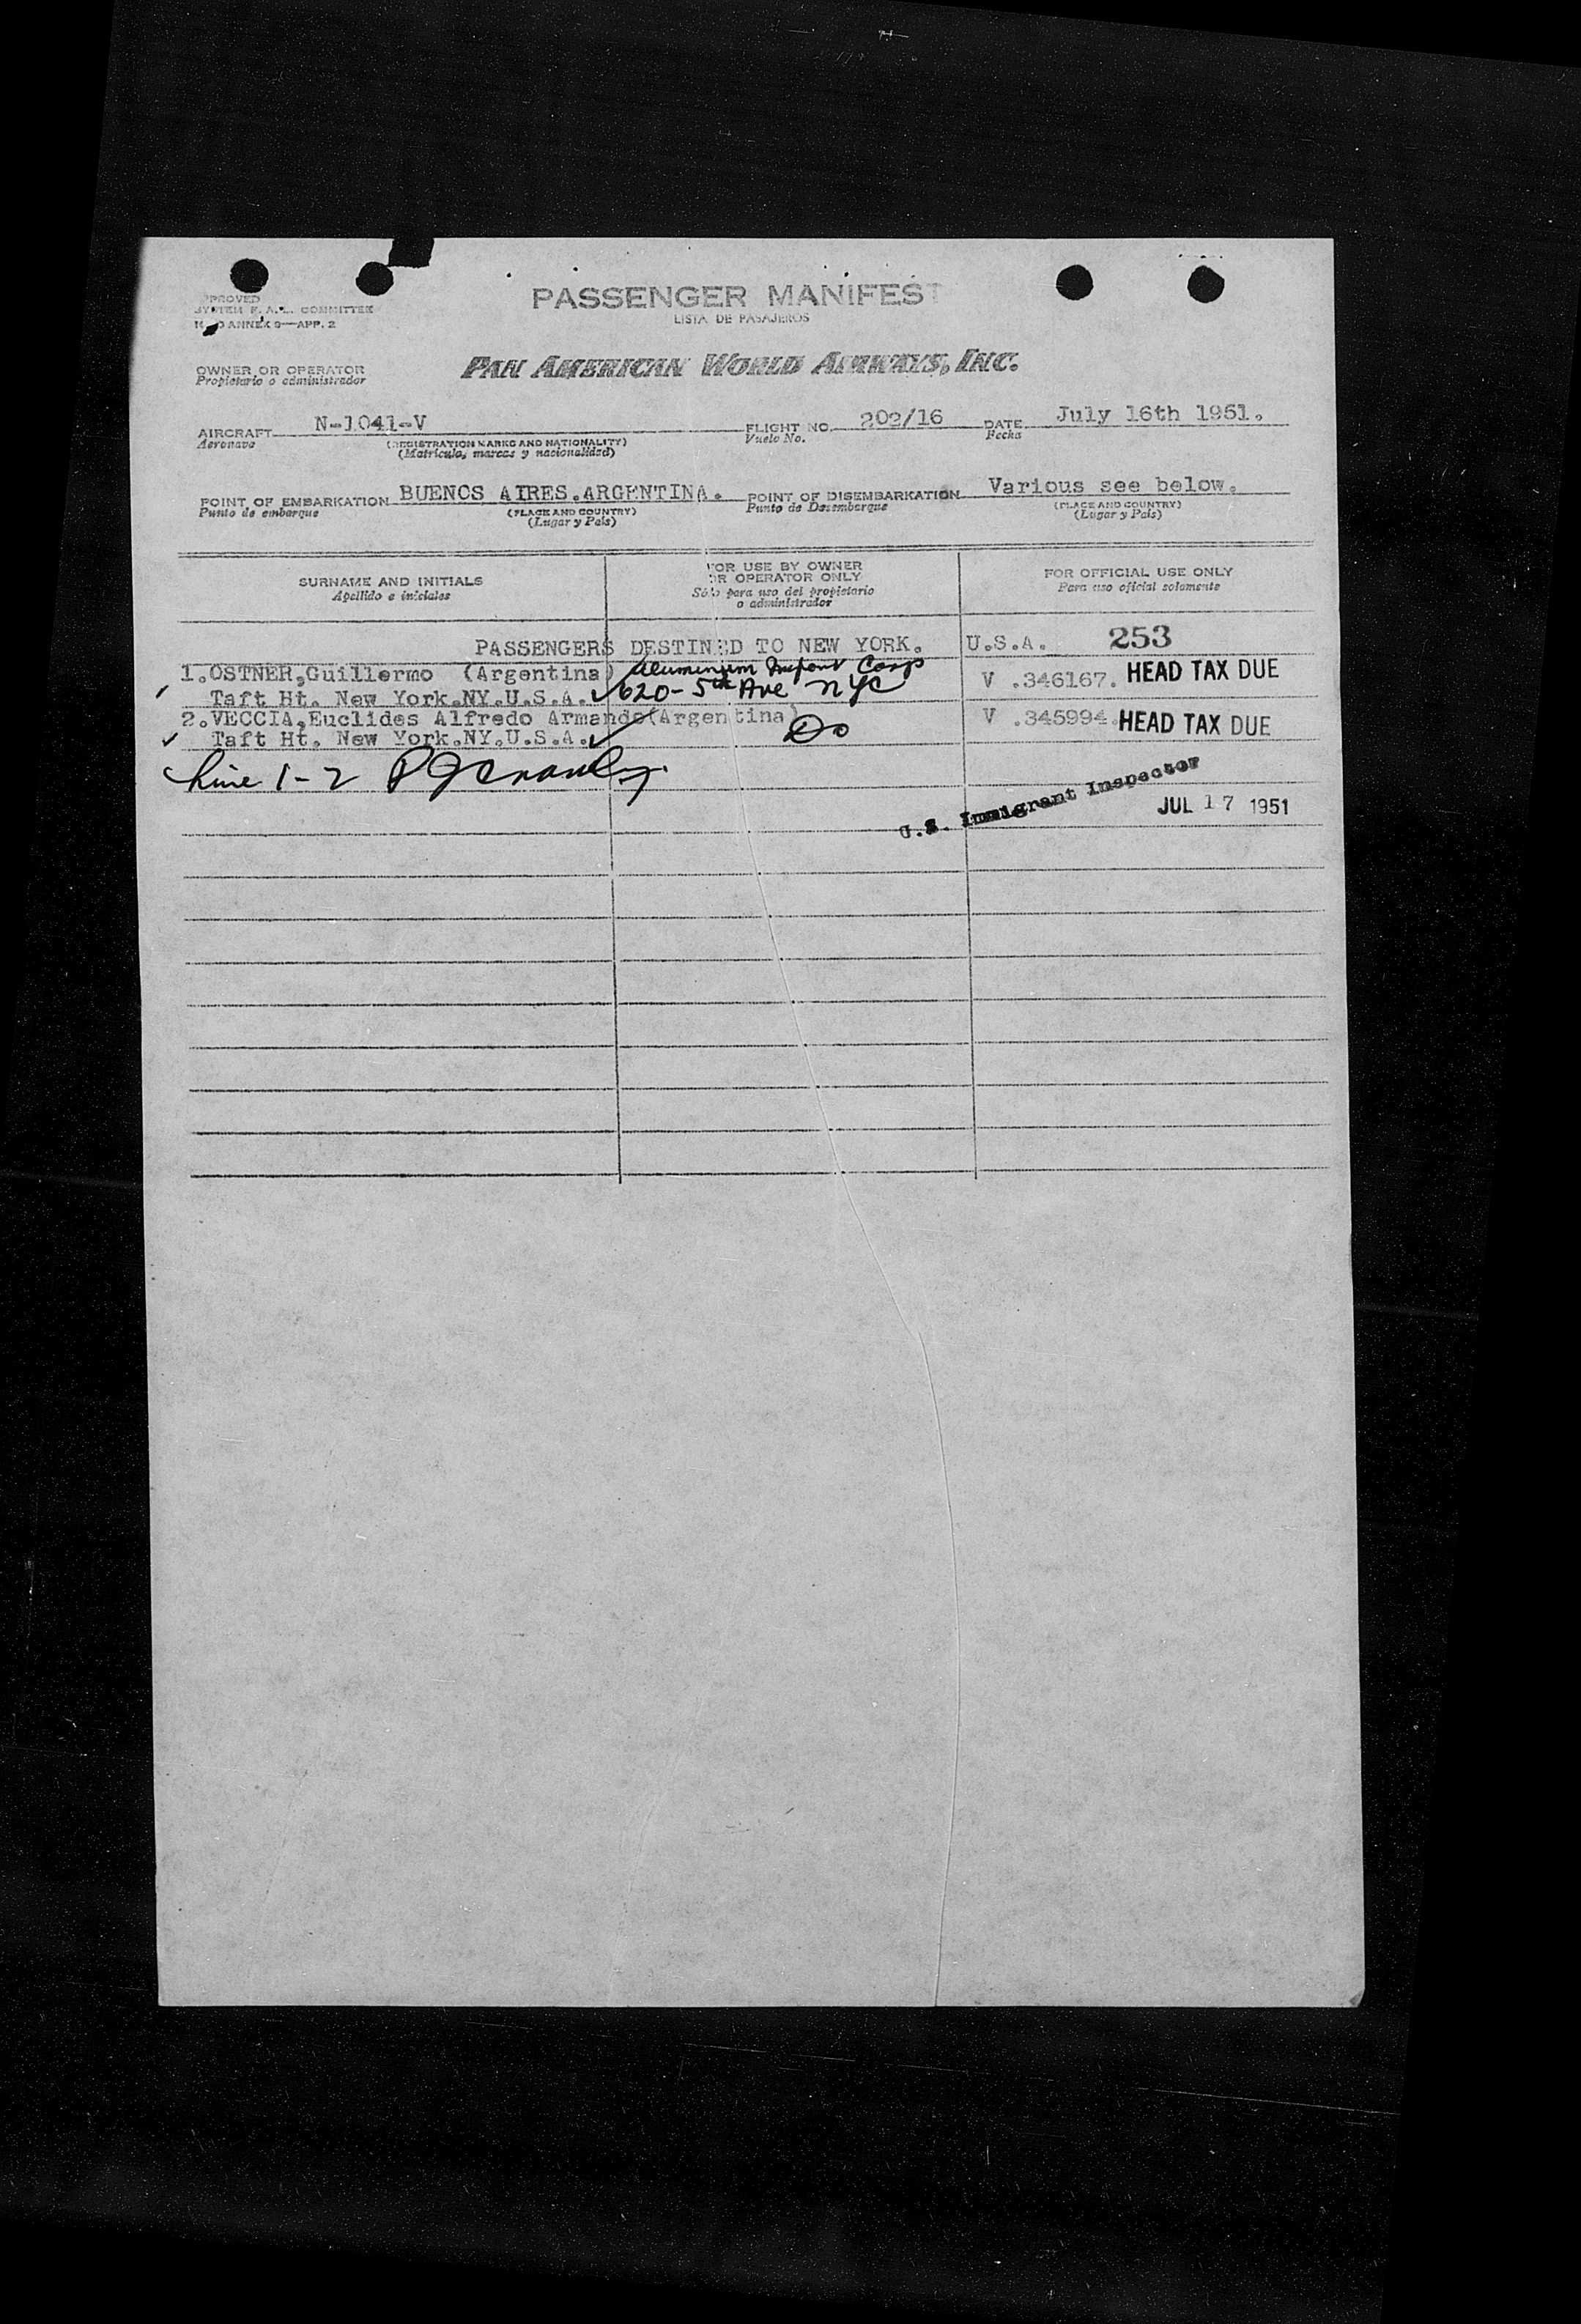 PROVED
SYSTEM F. A. L. COMMITTEE
ANNEX 9—APP. 2
PASSENGER MANIFEST
LISTA DE PASAJEROS
OWNER OR OPERATOR
Propietario o administrador
PAN AMERICAN WORLD AIRWAYS, INC.
AIRCRAFT N-1041-V FLIGHT NO. 202/16 DATE July 16th 1951.
Aeronave (REGISTRATION MARKS AND NATIONALITY) Vuelo No. Fecha
(Matrícula, marcas y nacionalidad)
POINT OF EMBARKATION BUENOS AIRES.ARGENTINA. POINT OF DISEMBARKATION Various see below.
Punto de embarque (PLACE AND COUNTRY) Punto de Desembarque (PLACE AND COUNTRY)
(Lugar y País) (Lugar y País)
SURNAME AND INITIALS
Apellido e iniciales
FOR USE BY OWNER
OR OPERATOR ONLY
Sólo para uso del propietario
o administrador
FOR OFFICIAL USE ONLY
Para uso oficial solamente
PASSENGERS DESTINED TO NEW YORK. U.S.A. 253
1.OSTNER,Guillermo (Argentina) Aluminium Import Corp
Taft Ht. New York.NY.U.S.A. 620-5th Ave NYC V .346167. HEAD TAX DUE
2.VECCIA,Euclides Alfredo Armando(Argentina) V .345994. HEAD TAX DUE
Taft Ht. New York.NY.U.S.A. Do
Line 1-2
U.S. Immigrant Inspector
JUL 17 1951